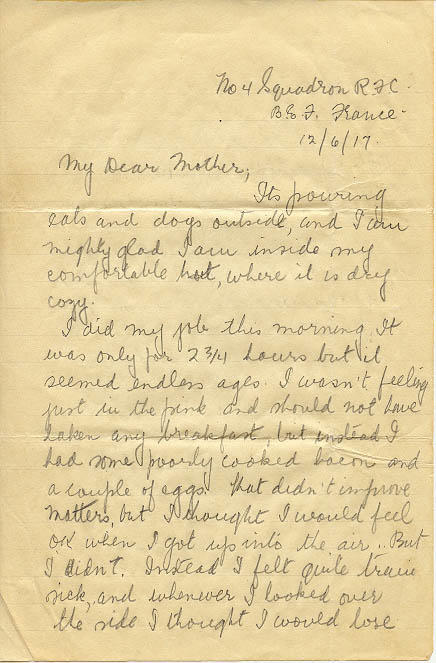 No 4 Squadron R.F.C.
B.E.F. France.
12/6/17.
My Dear Mother,
Its pouring
cats and dogs outside, and I am
mighty glad I am inside my
comfortable hut, where it is dry
cozy.
I did my job this morning. It
was only for 2 3/4 hours but it
seemed endless ages. I wasn't feeling
just in the pink and should not have
taken any breakfast, but instead I
had some poorly cooked bacon and
a couple of eggs. That didn't improve
matters, but I thought I would feel
OK when I got up into the air. But
I didn't. Instead I felt quite train
sick, and whenever I looked over
the side I thought I would lose